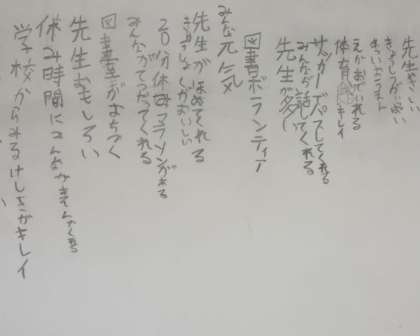 先生やさしい
きゅうしょくがおいしい
えがおでいれる
体育館キレイ
サッカーでパスしてくれる
みんなが話してくれる
先生が多い
図書ボランティア
みんな元気
先生がほめてくれる
きゅうしょくがおいしい
20分休みマラソンがある
みんながてつだってくれる
図書室がおちつく
先生おもしろい
休み時間にみんなが
学校からみるけしきがキレイ